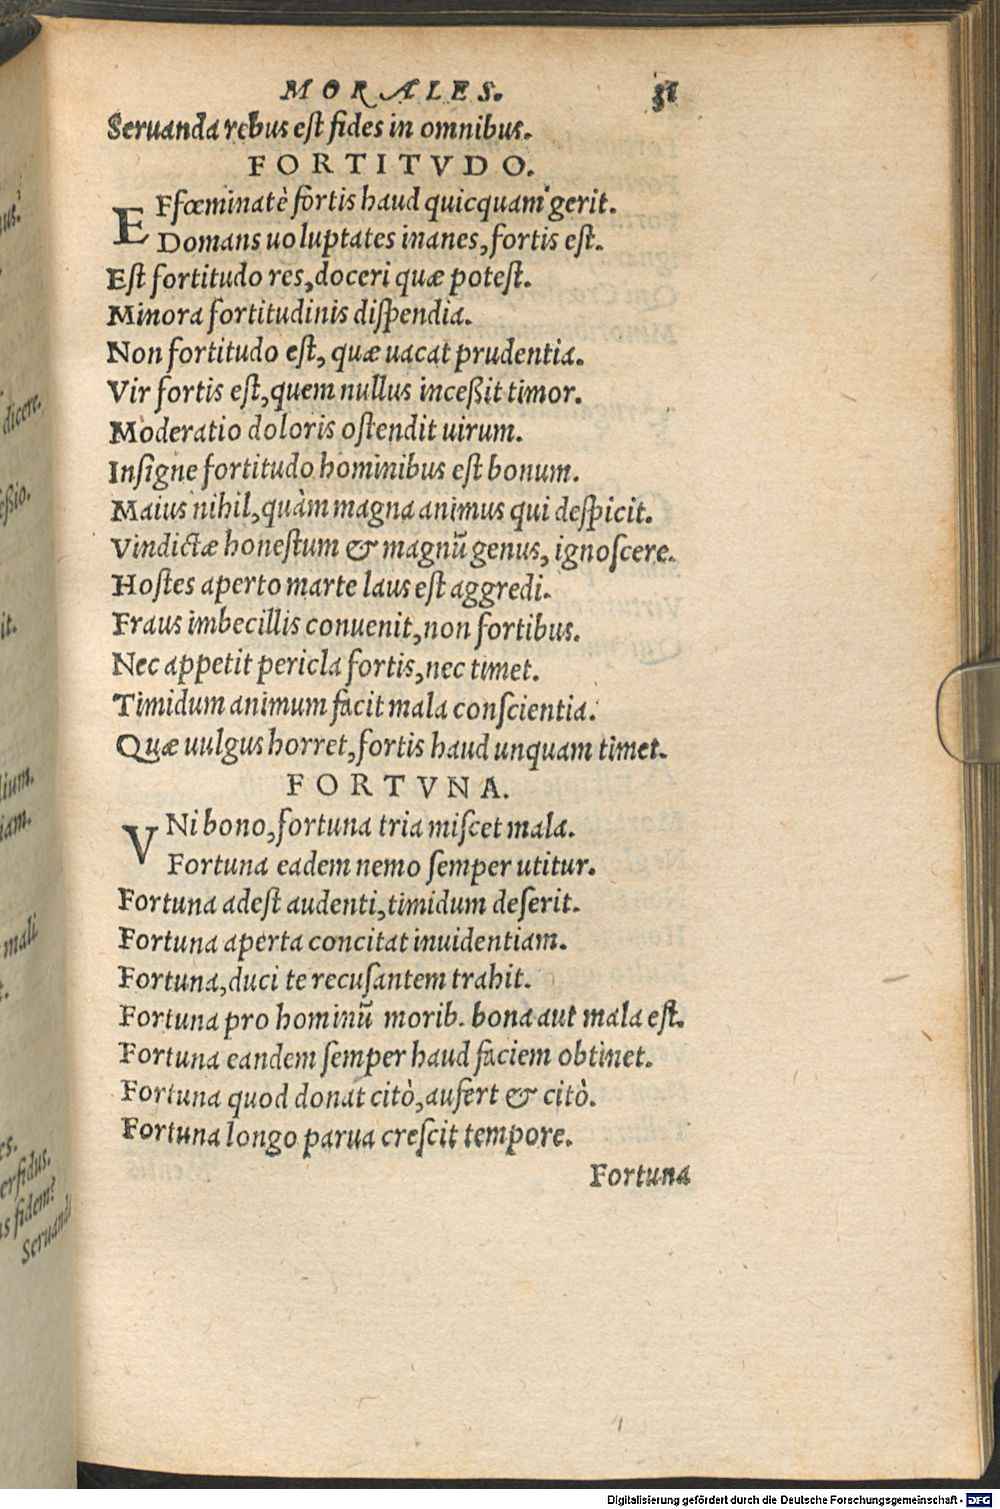 MORALES. 51
Seruanda rebus est fides in omnibus.
FORTITVDO.
EFfœminatè fortis haud quicquam gerit.
Domans uoluptates inanes, fortis est.
Est fortitudo res, doceri quæ potest.
Minora fortitudinis dispendia.
Non fortitudo est, quæ uacat prudentia.
Vir fortis est, quem nullus inceßit timor.
Moderatio doloris ostendit uirum.
Insigne fortitudo hominibus est bonum.
Maius nihil, quàm magna animus qui despicit.
Vindictæ honestum & magnũ genus, ignoscere.
Hostes aperto marte laus est aggredi.
Fraus imbecillis conuenit, non fortibus.
Nec appetit pericla fortis, nec timet.
Timidum animum facit mala conscientia.
Quæ uulgus horret, fortis haud unquam timet.
FORTVNA.
VNi bono, fortuna tria miscet mala.
Fortuna eadem nemo semper utitur.
Fortuna adest audenti, timidum deserit.
Fortuna aperta concitat inuidentiam.
Fortuna, duci te recusantem trahit.
Fortuna pro hominũ morib. bona aut mala est.
Fortuna eandem semper haud faciem obtinet.
Fortuna quod donat citò, aufert & citò.
Fortuna longo parua crescit tempore.
Fortuna
dicere.
eßio.
it.
lium.
iam.
mali
t.
es.
erfidus.
us fidem?
Seruanda
Digitalisierung gefördert durch die Deutsche Forschungsgemeinschaft - DFG